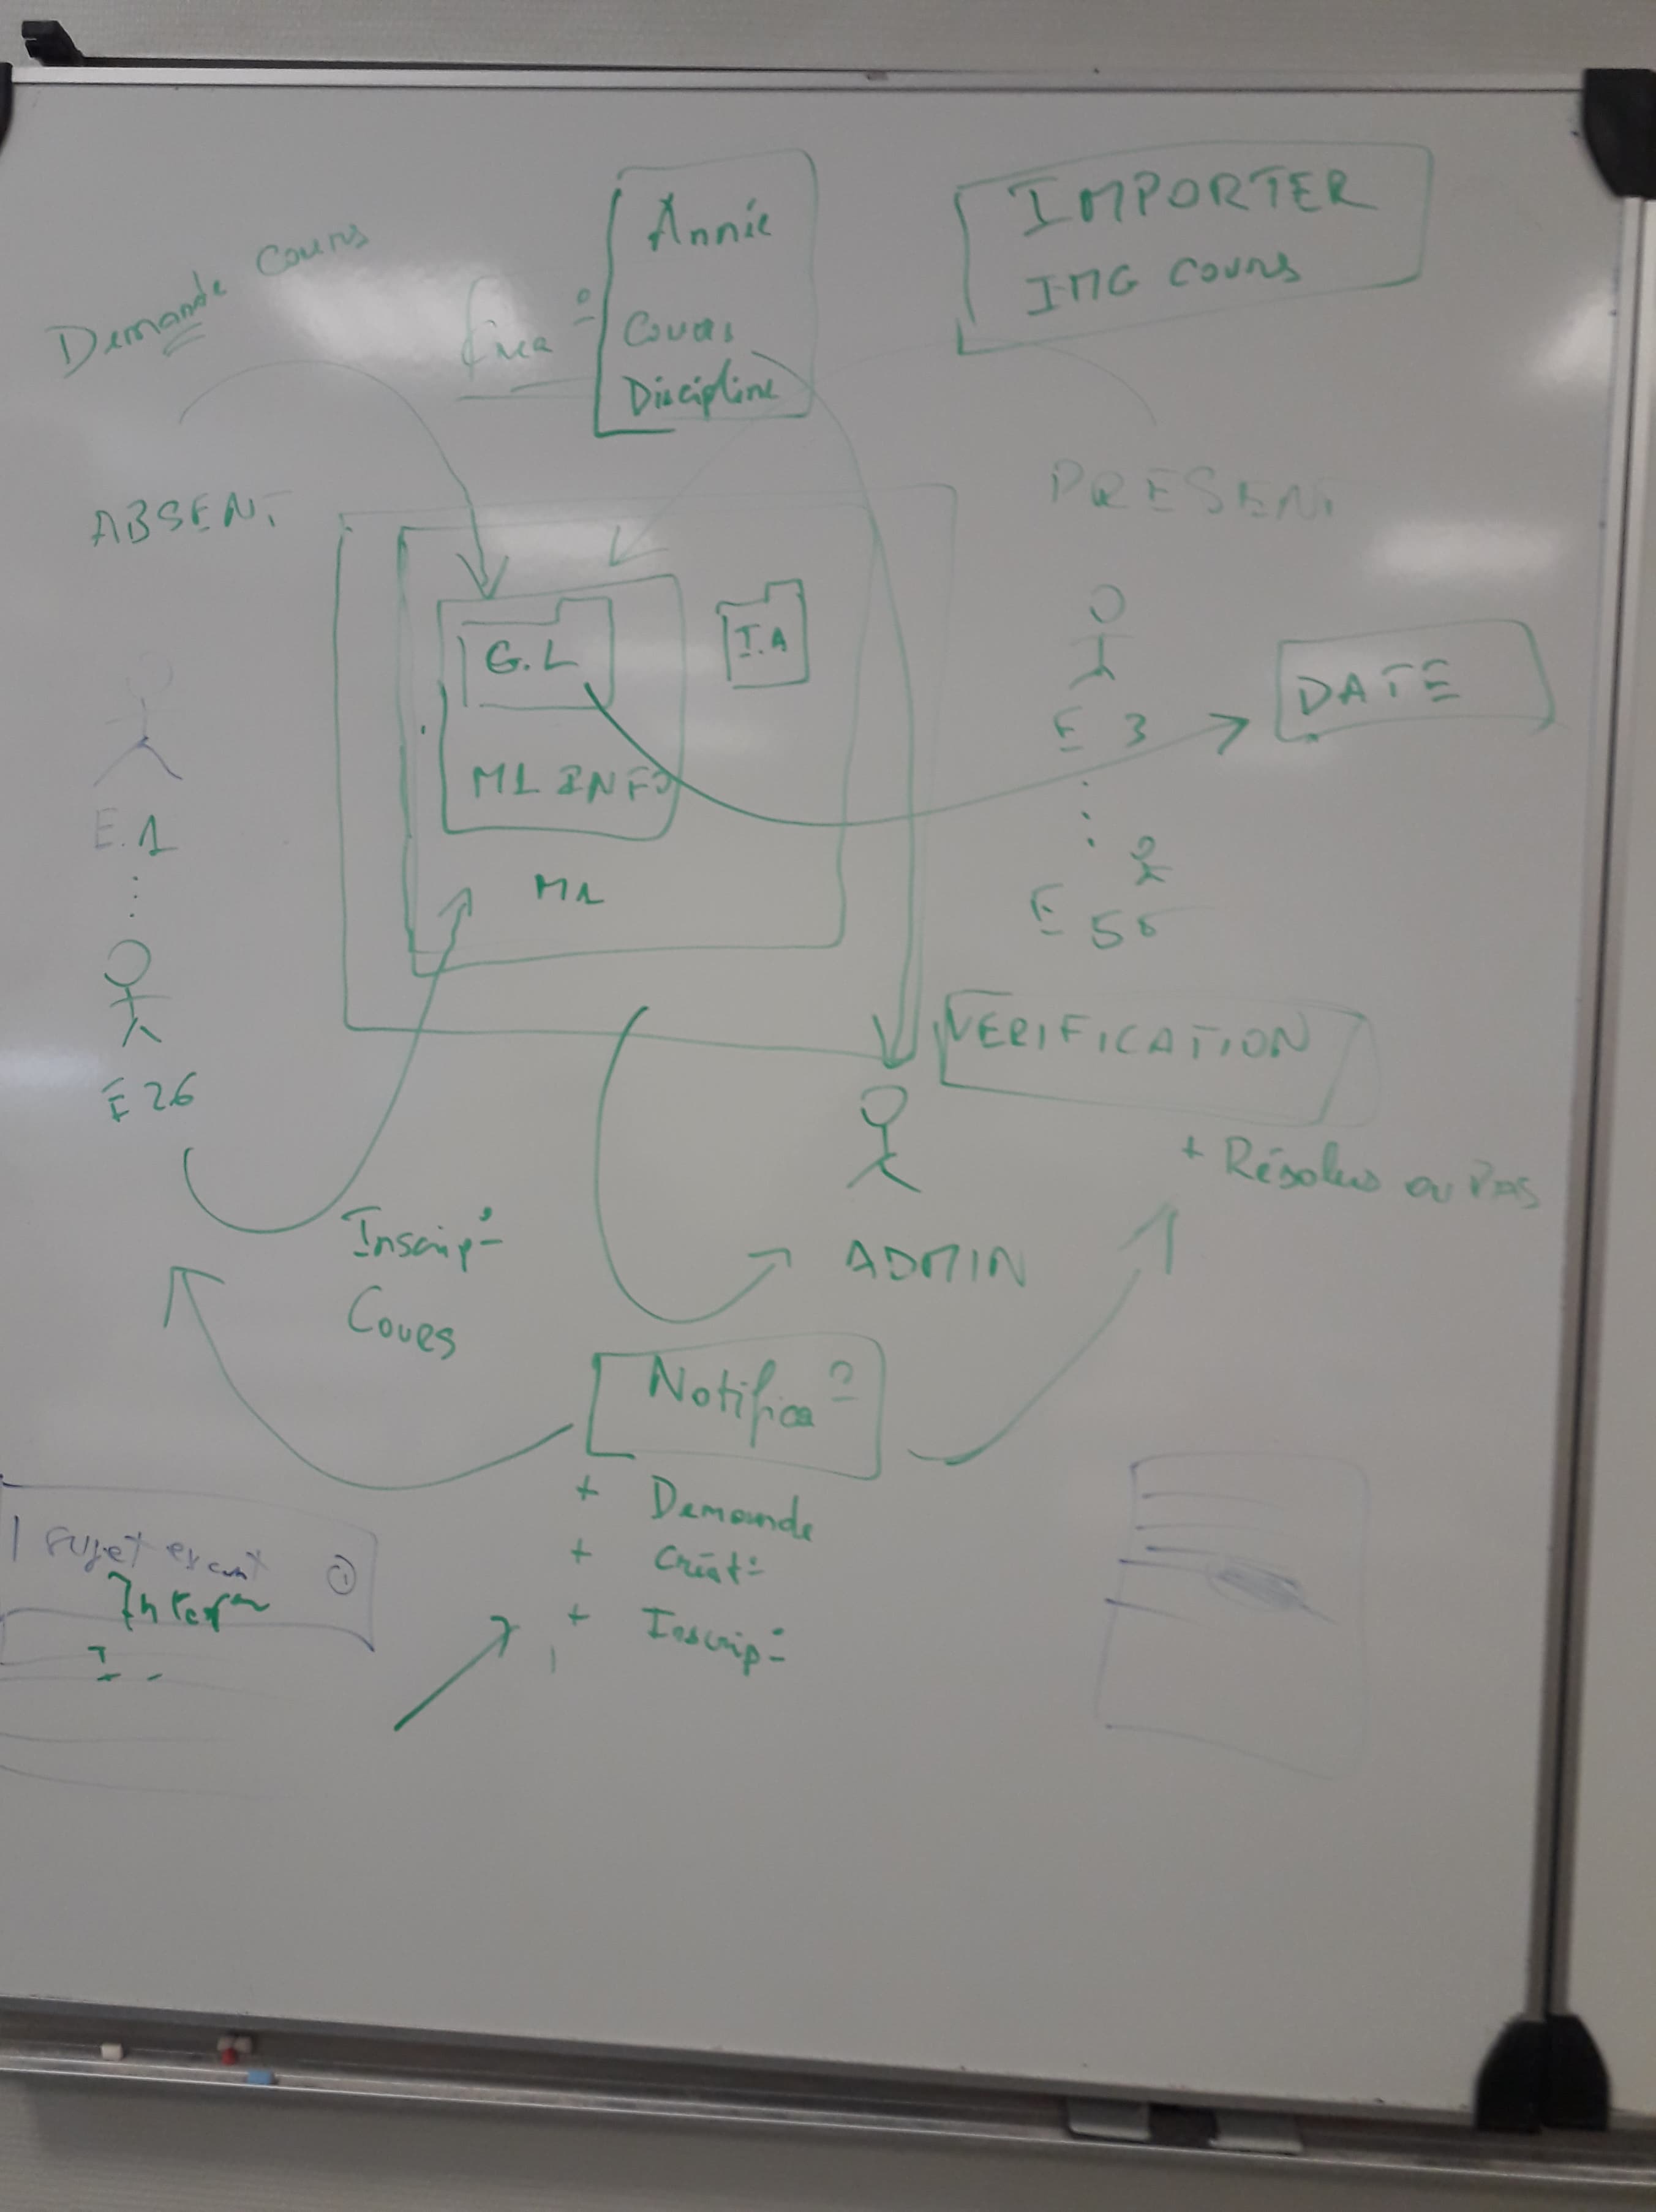 Demande Cours
Annie
Cours
Discipline
IMPORTER
IMG COURS
ABSENT
PRESENT
G.L
I.A
M1 INFO
M1
E.1
E 26
E 3
DATE
VERIFICATION
+ Résolus ou Pas
ADMIN
Inscrip°
Cours
Notifica°
+ Demande
+ Créat°
+ Inscrip°